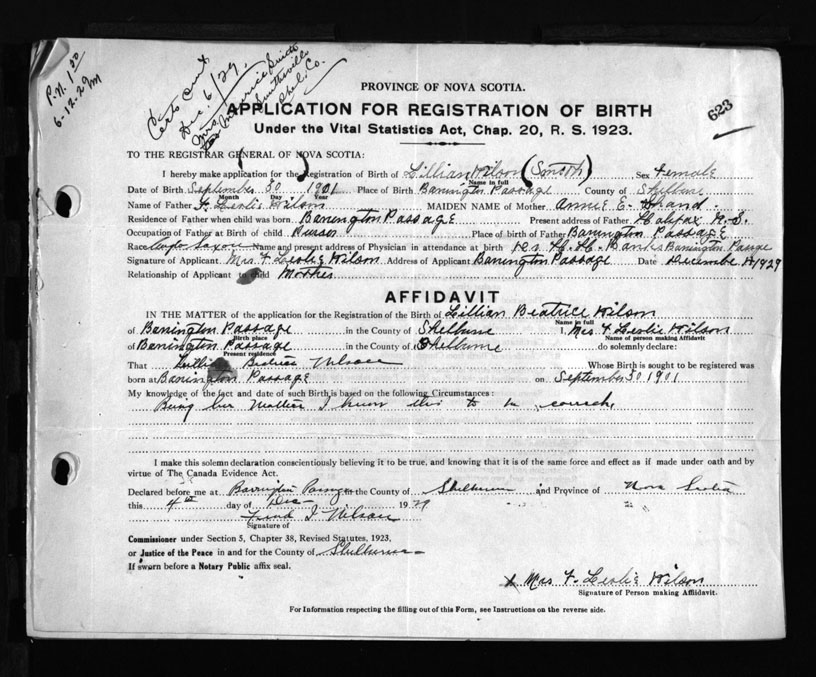 P.N. 1 00
6-12-29 M
Certs sent
Dec. 6/29.
Mrs Maurice Smith
Smithsville
Shel. Co.
623
PROVINCE OF NOVA SCOTIA.
APPLICATION FOR REGISTRATION OF BIRTH
Under the Vital Statistics Act, Chap. 20, R. S. 1923.
TO THE REGISTRAR GENERAL OF NOVA SCOTIA:
I hereby make application for the Registration of Birth of Lillian Wilson (Smith) Sex Female
Name in full
Date of Birth September 30 1901 Place of Birth Barrington Passage County of Shelburne
Month Day Year
Name of Father F. Leslie Wilson MAIDEN NAME of Mother Annie E.
Residence of Father when child was born Barrington Passage Present address of Father Halifax N.S.
Occupation of Father at Birth of child Place of birth of Father Barrington Passage
Race Anglo Saxon Name and present address of Physician in attendance at birth H. H. Banks Barrington Passage
Signature of Applicant Mrs F Leslie Wilson Address of Applicant Barrington Passage Date December 4/1929
Relationship of Applicant to child Mother
AFFIDAVIT
IN THE MATTER of the application for the Registration of the Birth of Lillian Beatrice Wilson
Name in full
of Barrington Passage in the County of Shelburne I, Mrs F Leslie Wilson
Birth place Name of person making Affidavit
of Barrington Passage in the County of Shelburne do solemnly declare:
Present residence
That Lillian Beatrice Wilson Whose Birth is sought to be registered was
born at Barrington Passage on September 30 1901
My knowledge of the fact and date of such Birth is based on the following Circumstances:
Being her Mother I know this to be correct,
I make this solemn declaration conscientiously believing it to be true, and knowing that it is of the same force and effect as if made under oath and by
virtue of The Canada Evidence Act.
Declared before me at Barrington Passage in the County of Shelburne and Province of Nova Scotia
this 4th day of Dec 1929
Signature of
Commissioner under Section 5, Chapter 38, Revised Statutes, 1923,
or Justice of the Peace in and for the County of Shelburne
If sworn before a Notary Public affix seal.
x Mrs F. Leslie Wilson
Signature of Person making Affidavit.
For Information respecting the filling out of this Form, see Instructions on the reverse side.